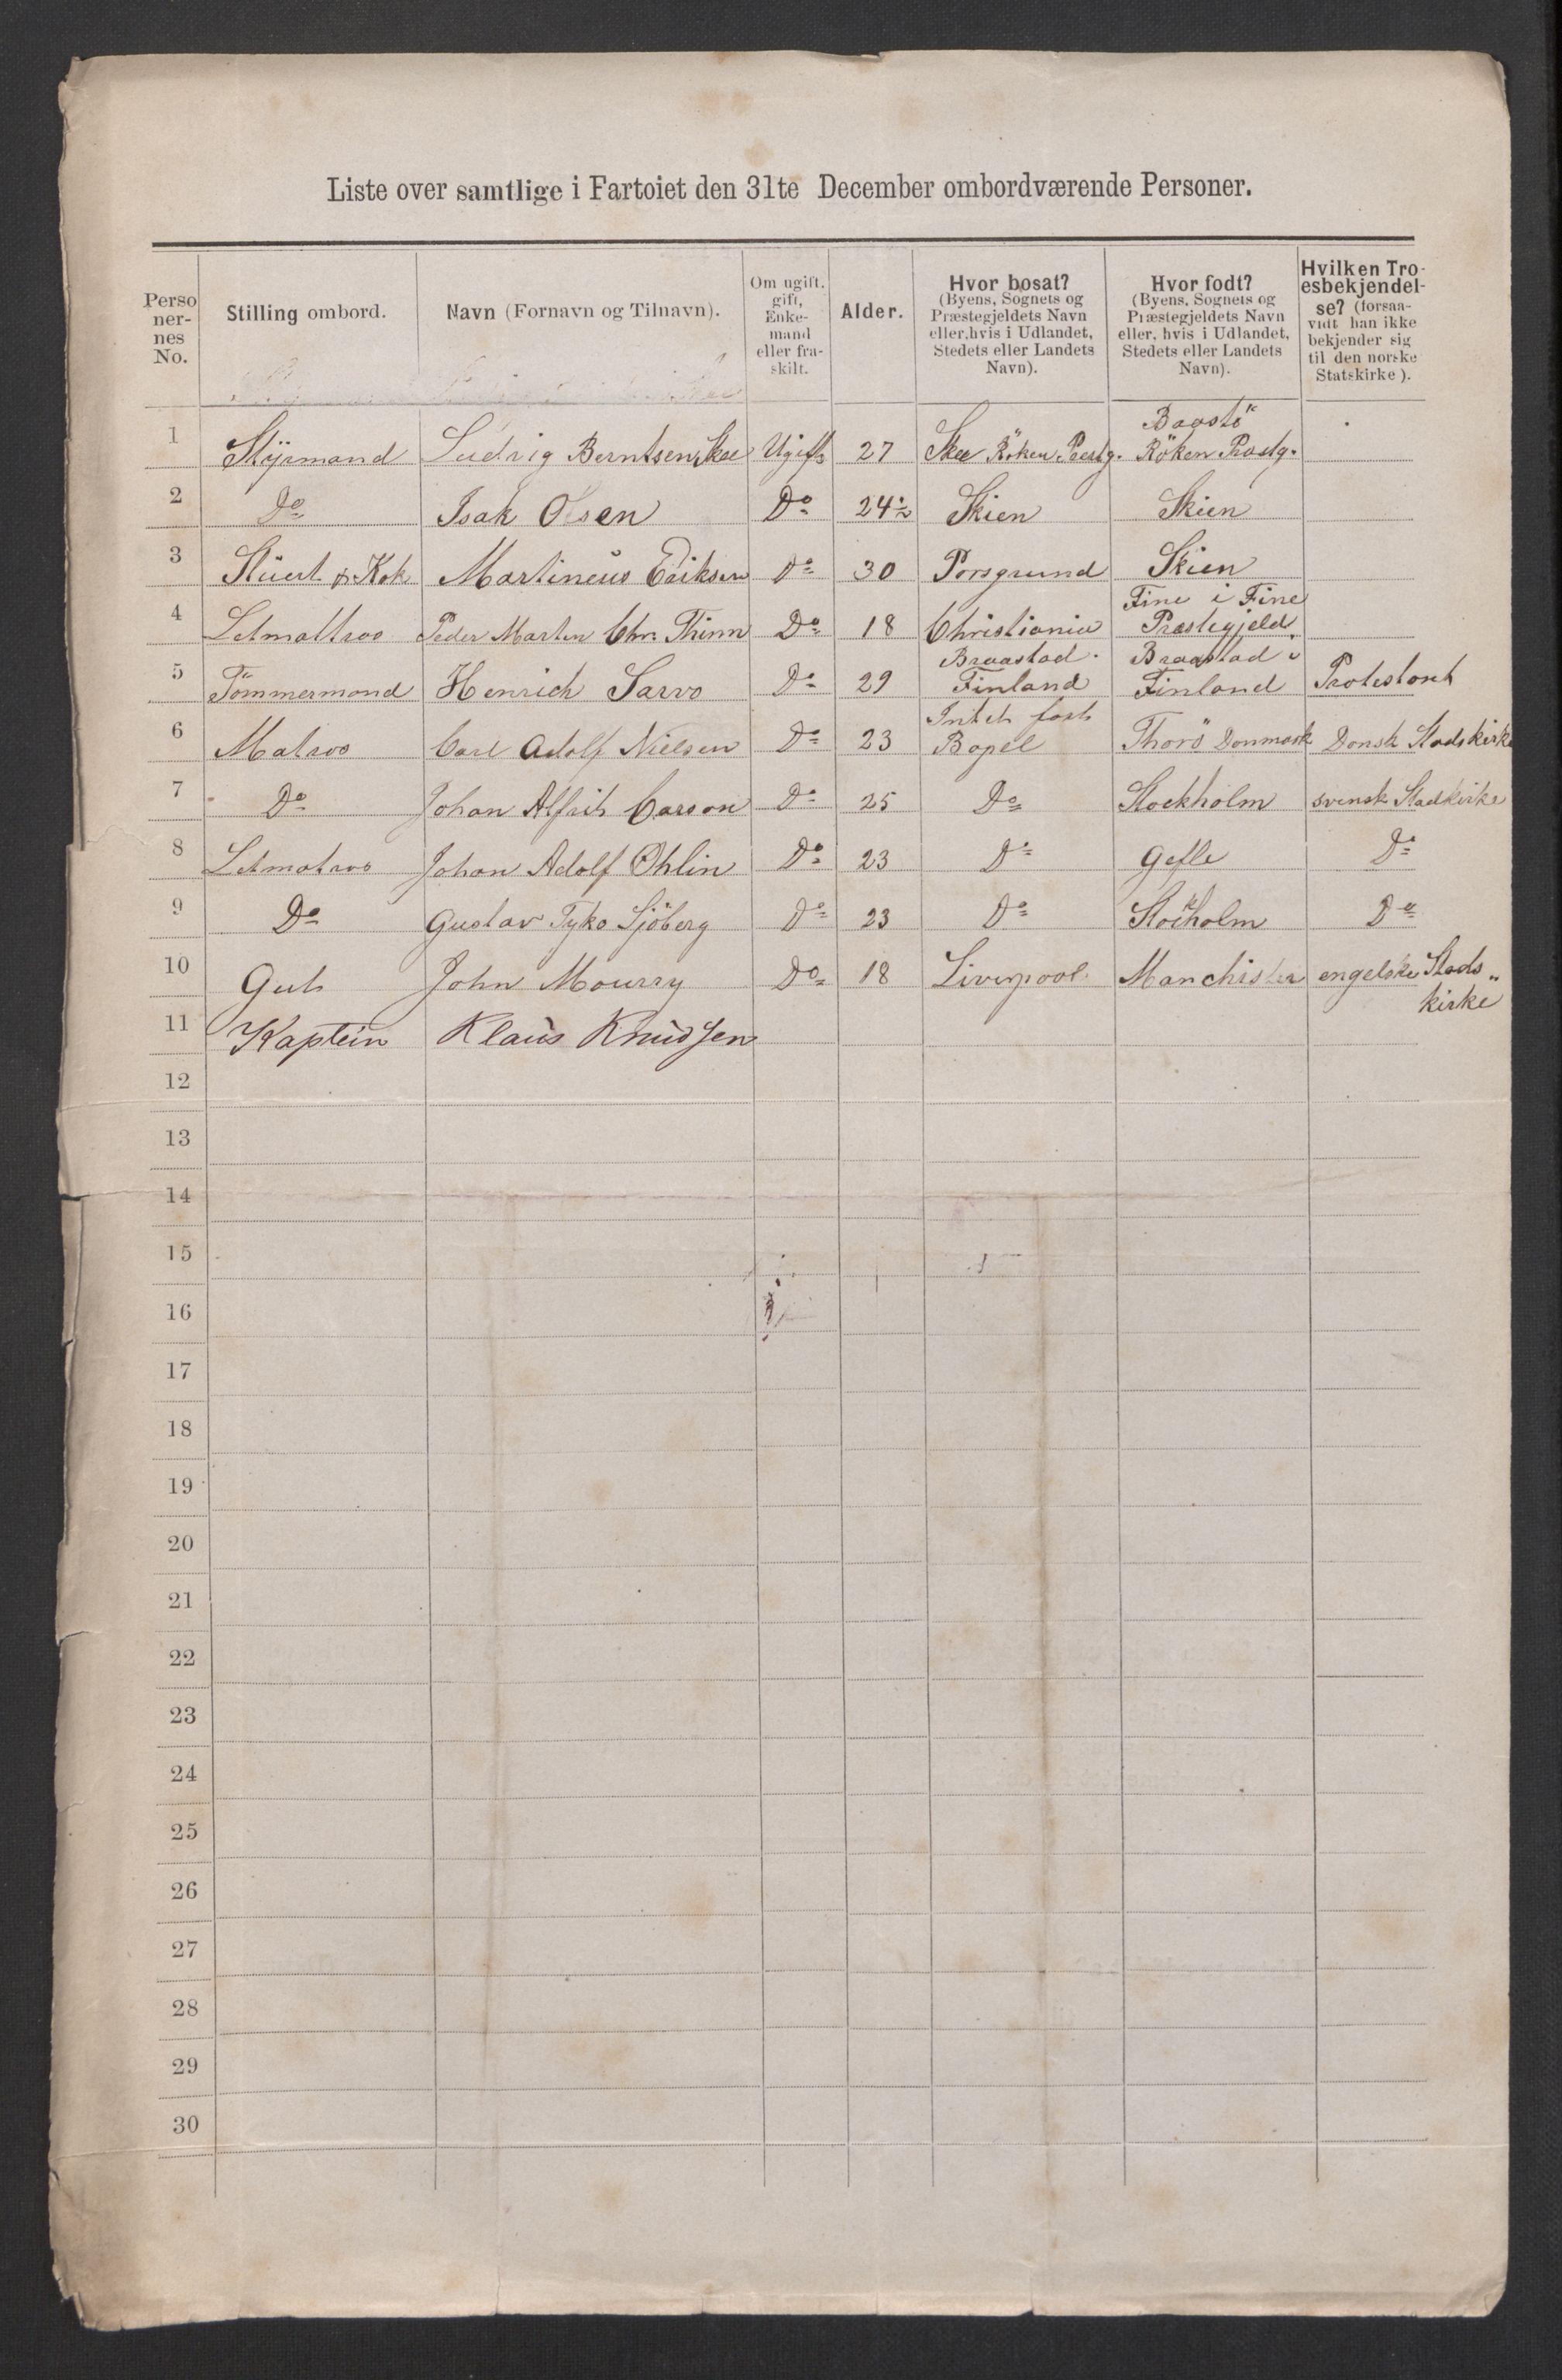 Liste over samtlige i Fartoiet den 31te December ombordværende Personer.
Perso
ner-
nes
No.
Stilling ombord.
Navn (Fornavn og Tilnavn).
Om ugift.
gift,
Enke-
mand
eller fra-
skilt.
Alder.
Hvor bosat?
(Byens, Sognets og
Præstegjeldets Navn
eller, hvis i Udlandet,
Stedets eller Landets
Navn).
Hvor fodt?
(Byens, Sognets og
Præstegjeldets Navn
eller, hvis i Udlandet,
Stedets eller Landets
Navn).
Hvilken Tro-
esbekjendel-
se? (forsaa-
vidt han ikke
bekjender sig
til den norske
Statskirke).
Baastö
1 Styrmand Ludvig Berntsen Skee Ugift 27 Skee Röken Præstg. Röken Præstg.
2 Do Isak Olsen Do 24½ Skien Skien
3 Stuert & Kok Martineus Eriksen Do 30 Porsgrund Skien
Fine i Fine
4 Letmattros Peder Marten Chr. Thinn Do 18 Christiania Præstegjeld.
Braastad. Braastad i
5 Tömmermand Henrich Sarvo Do 29 Finland Finland Protestant
Intet fast
6 Matros Carl Adolf Nielsen Do 23 Bopel Thorö Danmark Dansk Stadskirke
7 Do Johan Alfrit Carson Do 25 Do Stockholm svensk Stadkirke
8 Letmatros Johan Adolf Öhlin Do 23 Do Gefle Do
9 Do Gustav Tyko Sjöberg Do 23 Do Stockholm Do
10 Gut John Mourry Do 18 Liverpool Manchister engelske Stads"
kirke
11 Kaptein Klaus Knudsen
12
13
14
15
16
17
18
19
20
21
22
23
24
25
26
27
28
29
30